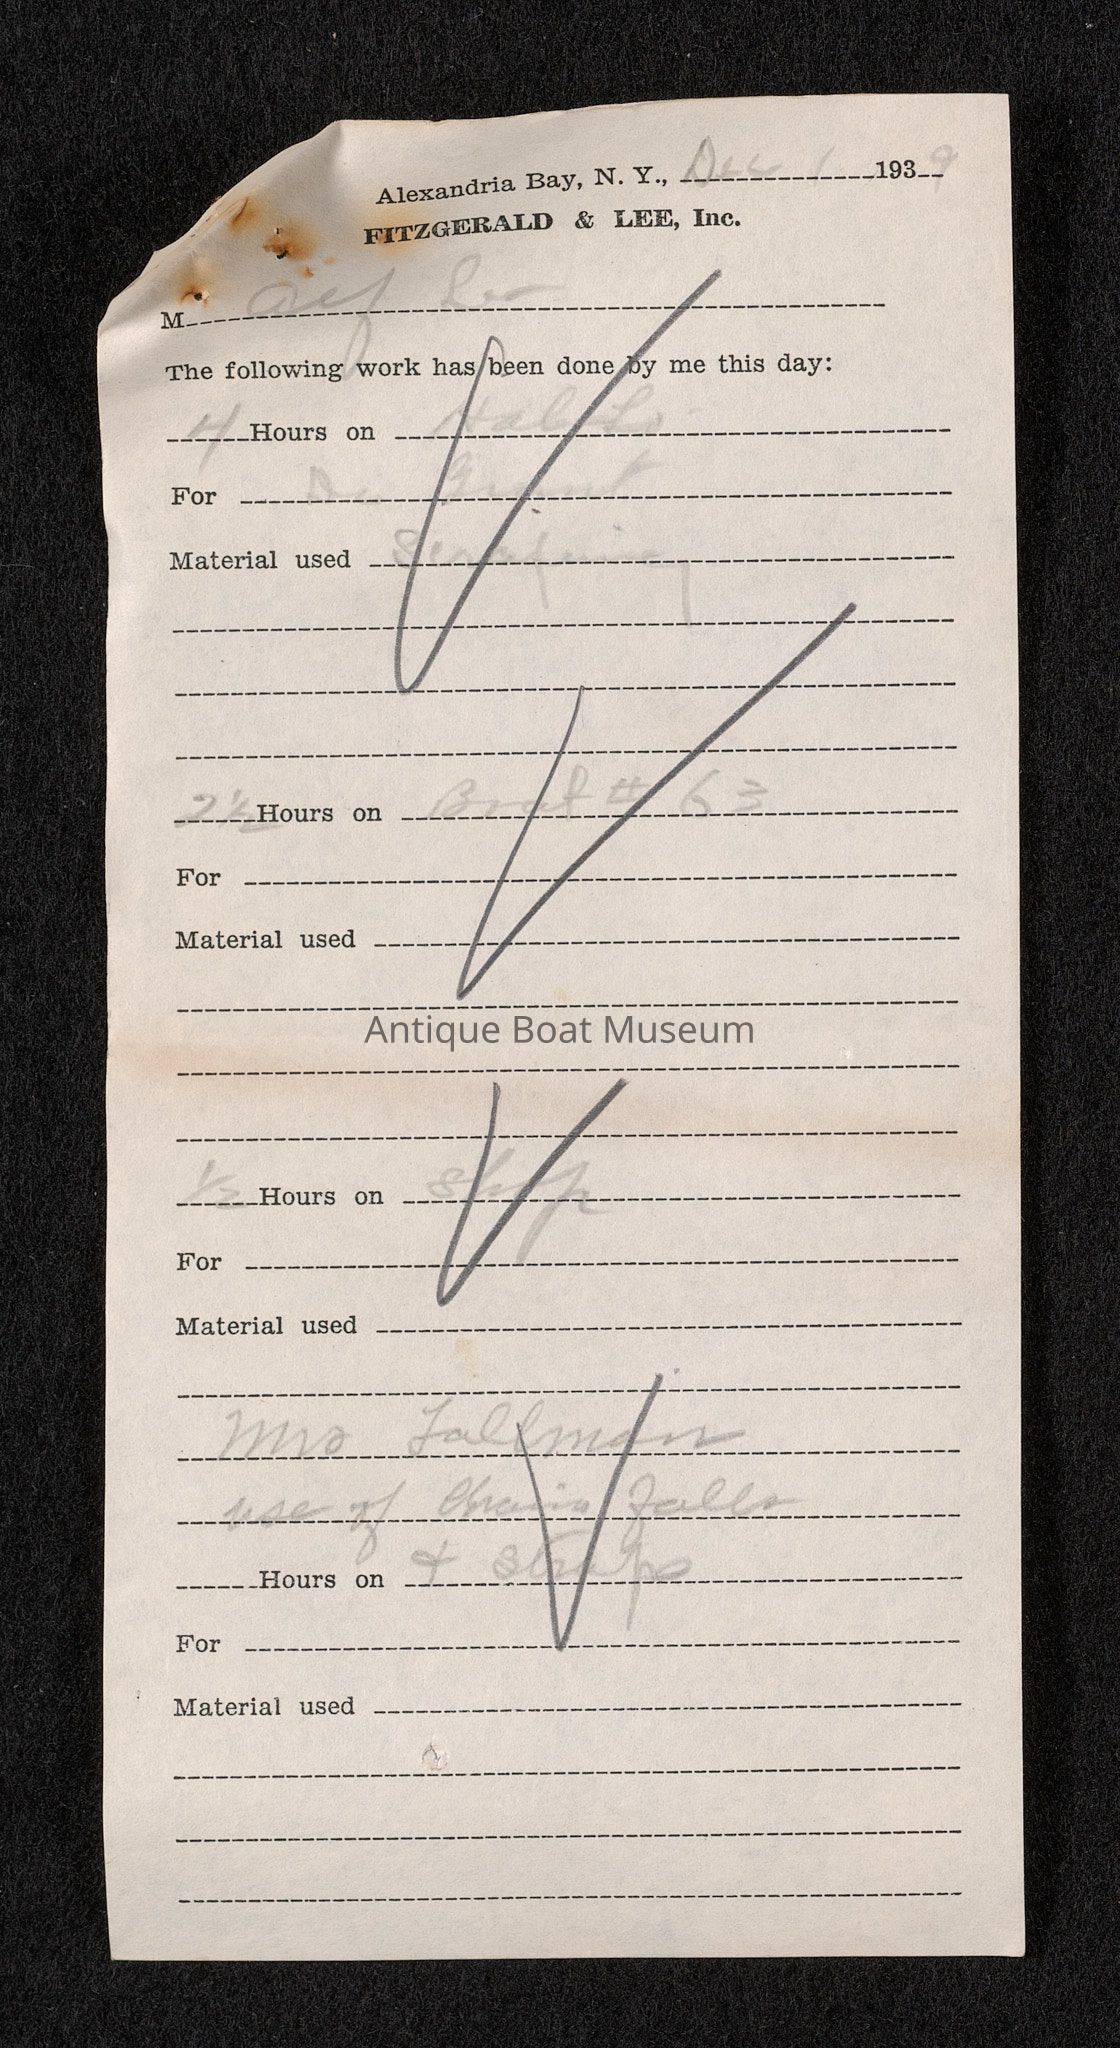 Alexandria Bay, N. Y., Dec 1 1939
FITZGERALD & LEE, Inc.
M
The following work has been done by me this day:
4 Hours on
For Grant
Material used Scraping
2½ Hours on Boat # 63
For
Material used
Antique Boat Museum
½ Hours on Shop
For
Material used
Mrs
use of Chain Falls
Hours on & Straps
For
Material used